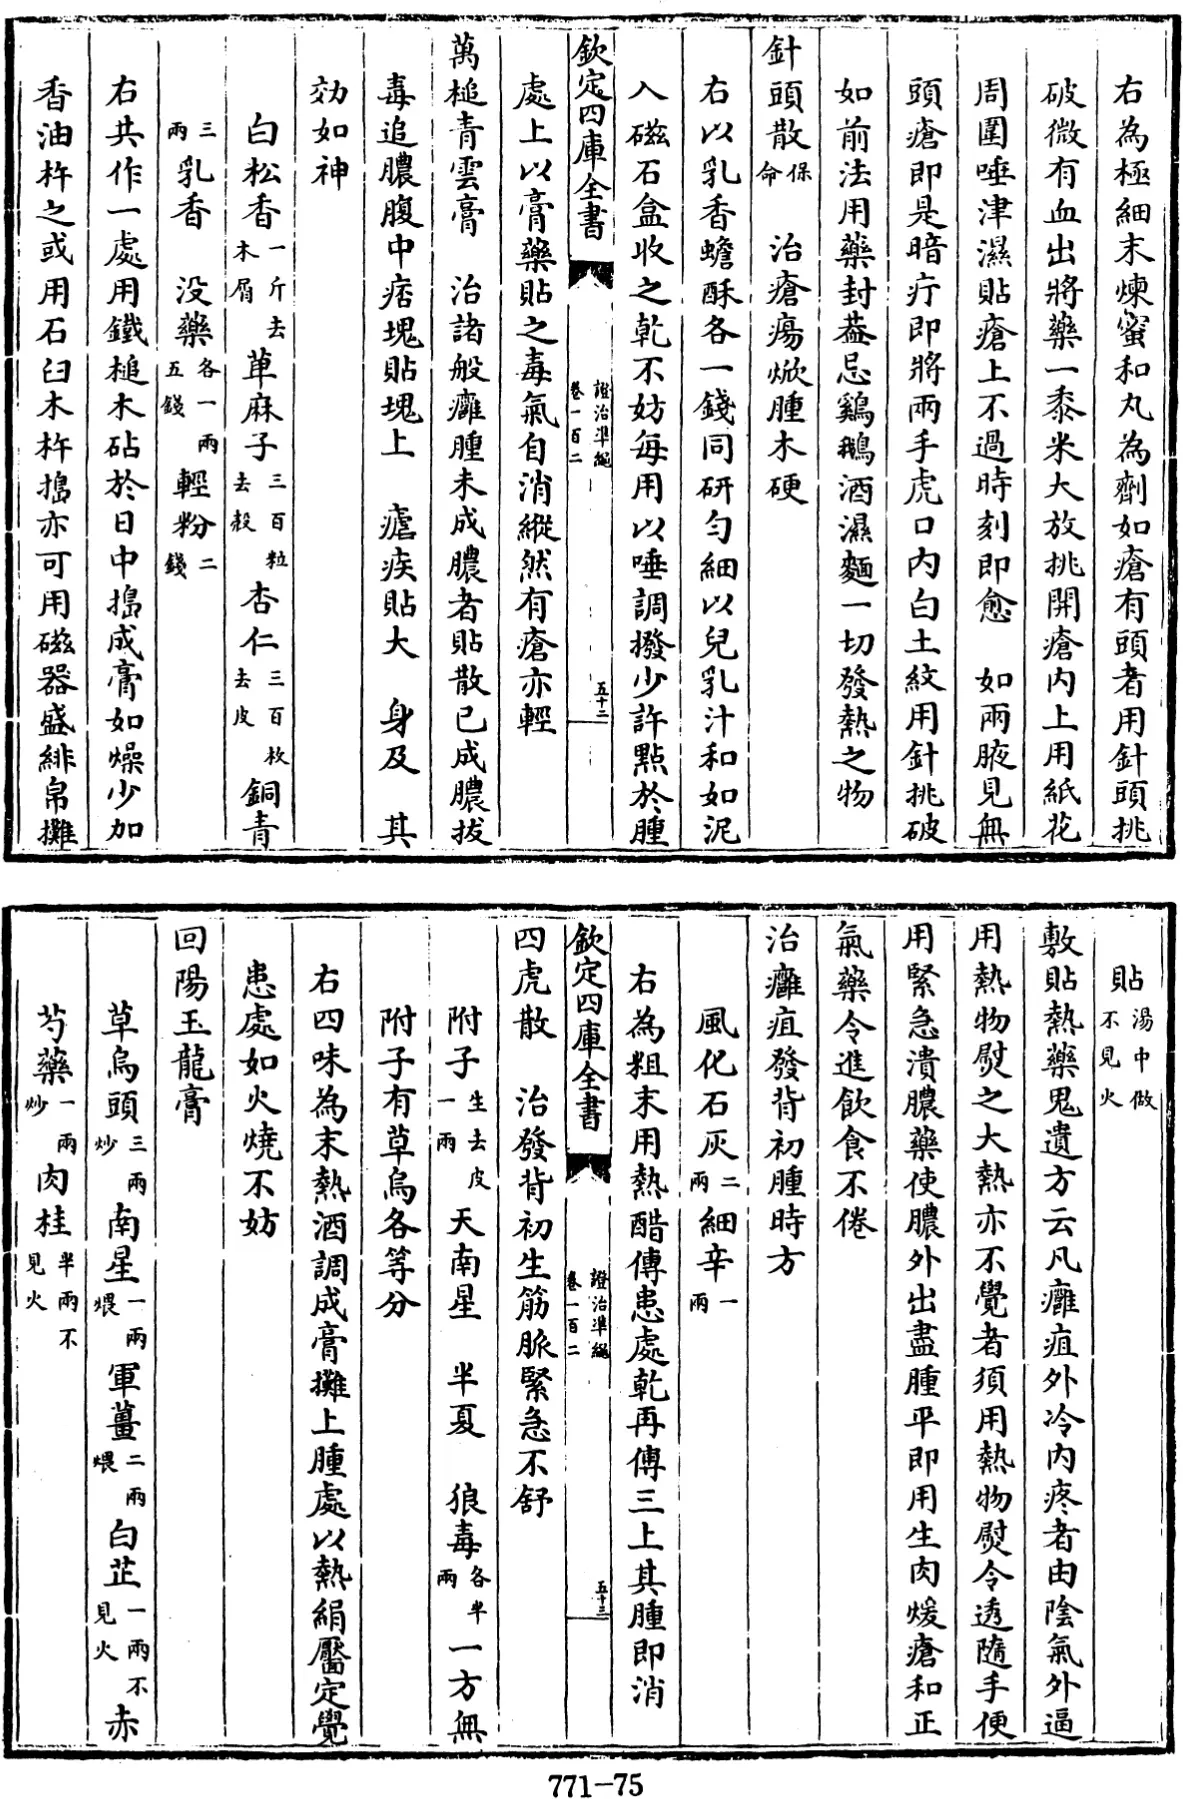 右為極細末煉蜜和丸為劑如瘡有頭者用針頭挑
破微有血出將藥一黍米大放挑開瘡内上用紙花
周圍唾津濕貼瘡上不過時刻即愈　如兩腋見無
頭瘡即是暗疔即將兩手虎口内白土紋用針挑破
如前法用藥封葢忌鷄鵝酒濕麵一切發熱之物
針頭散保命　治瘡瘍焮腫木硬
右以乳香蟾酥各一錢同研勻細以兒乳汁和如泥
入磁石盒收之乾不妨每用以唾調撥少許點於腫
欽定四庫全書　證治準繩卷一百二　五十二
處上以膏藥貼之毒氣自消縱然有瘡亦輕
萬槌青雲膏　治諸般癰腫未成膿者貼散已成膿拔
毒追膿腹中痞塊貼塊上　瘧疾貼大　身及　其
効如神
白松香一斤去木屑　萆麻子三百粒去殼　杏仁三百枚去皮　銅青
三兩　乳香　没藥各一兩五錢　輕粉二錢
右共作一處用鐵槌木砧於日中搗成膏如燥少加
香油杵之或用石臼木杵搗亦可用磁器盛緋帛攤
貼湯中做不見火
敷貼熱藥鬼遺方云凡癰疽外冷内疼者由陰氣外逼
用熱物熨之大熱亦不覺者須用熱物熨令透隨手便
用緊急潰膿藥使膿外出盡腫平即用生肉煖瘡和正
氣藥令進飲食不倦
治癰疽發背初腫時方
風化石灰二兩　細辛一兩
右為粗末用熱醋傅患處乾再傅三上其腫即消
欽定四庫全書　證治準繩卷一百二　五十三
四虎散　治發背初生筋脈緊急不舒
附子生去皮一兩　天南星　半夏　狼毒各半兩　一方無
附子有草烏各等分
右四味為末熱酒調成膏攤上腫處以熱絹壓定覺
患處如火燒不妨
回陽玉龍膏
草烏頭三兩炒　南星一兩煨　軍薑二兩煨　白芷一兩不見火　赤
芍藥一兩炒　肉桂半兩不見火
771-75